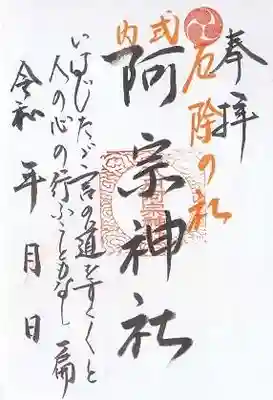 奉拝
厄除の社
式内
阿宗神社
いはじたゞ言の道をすくゝと
人の心の行ふしともなし
令和 年 月 日